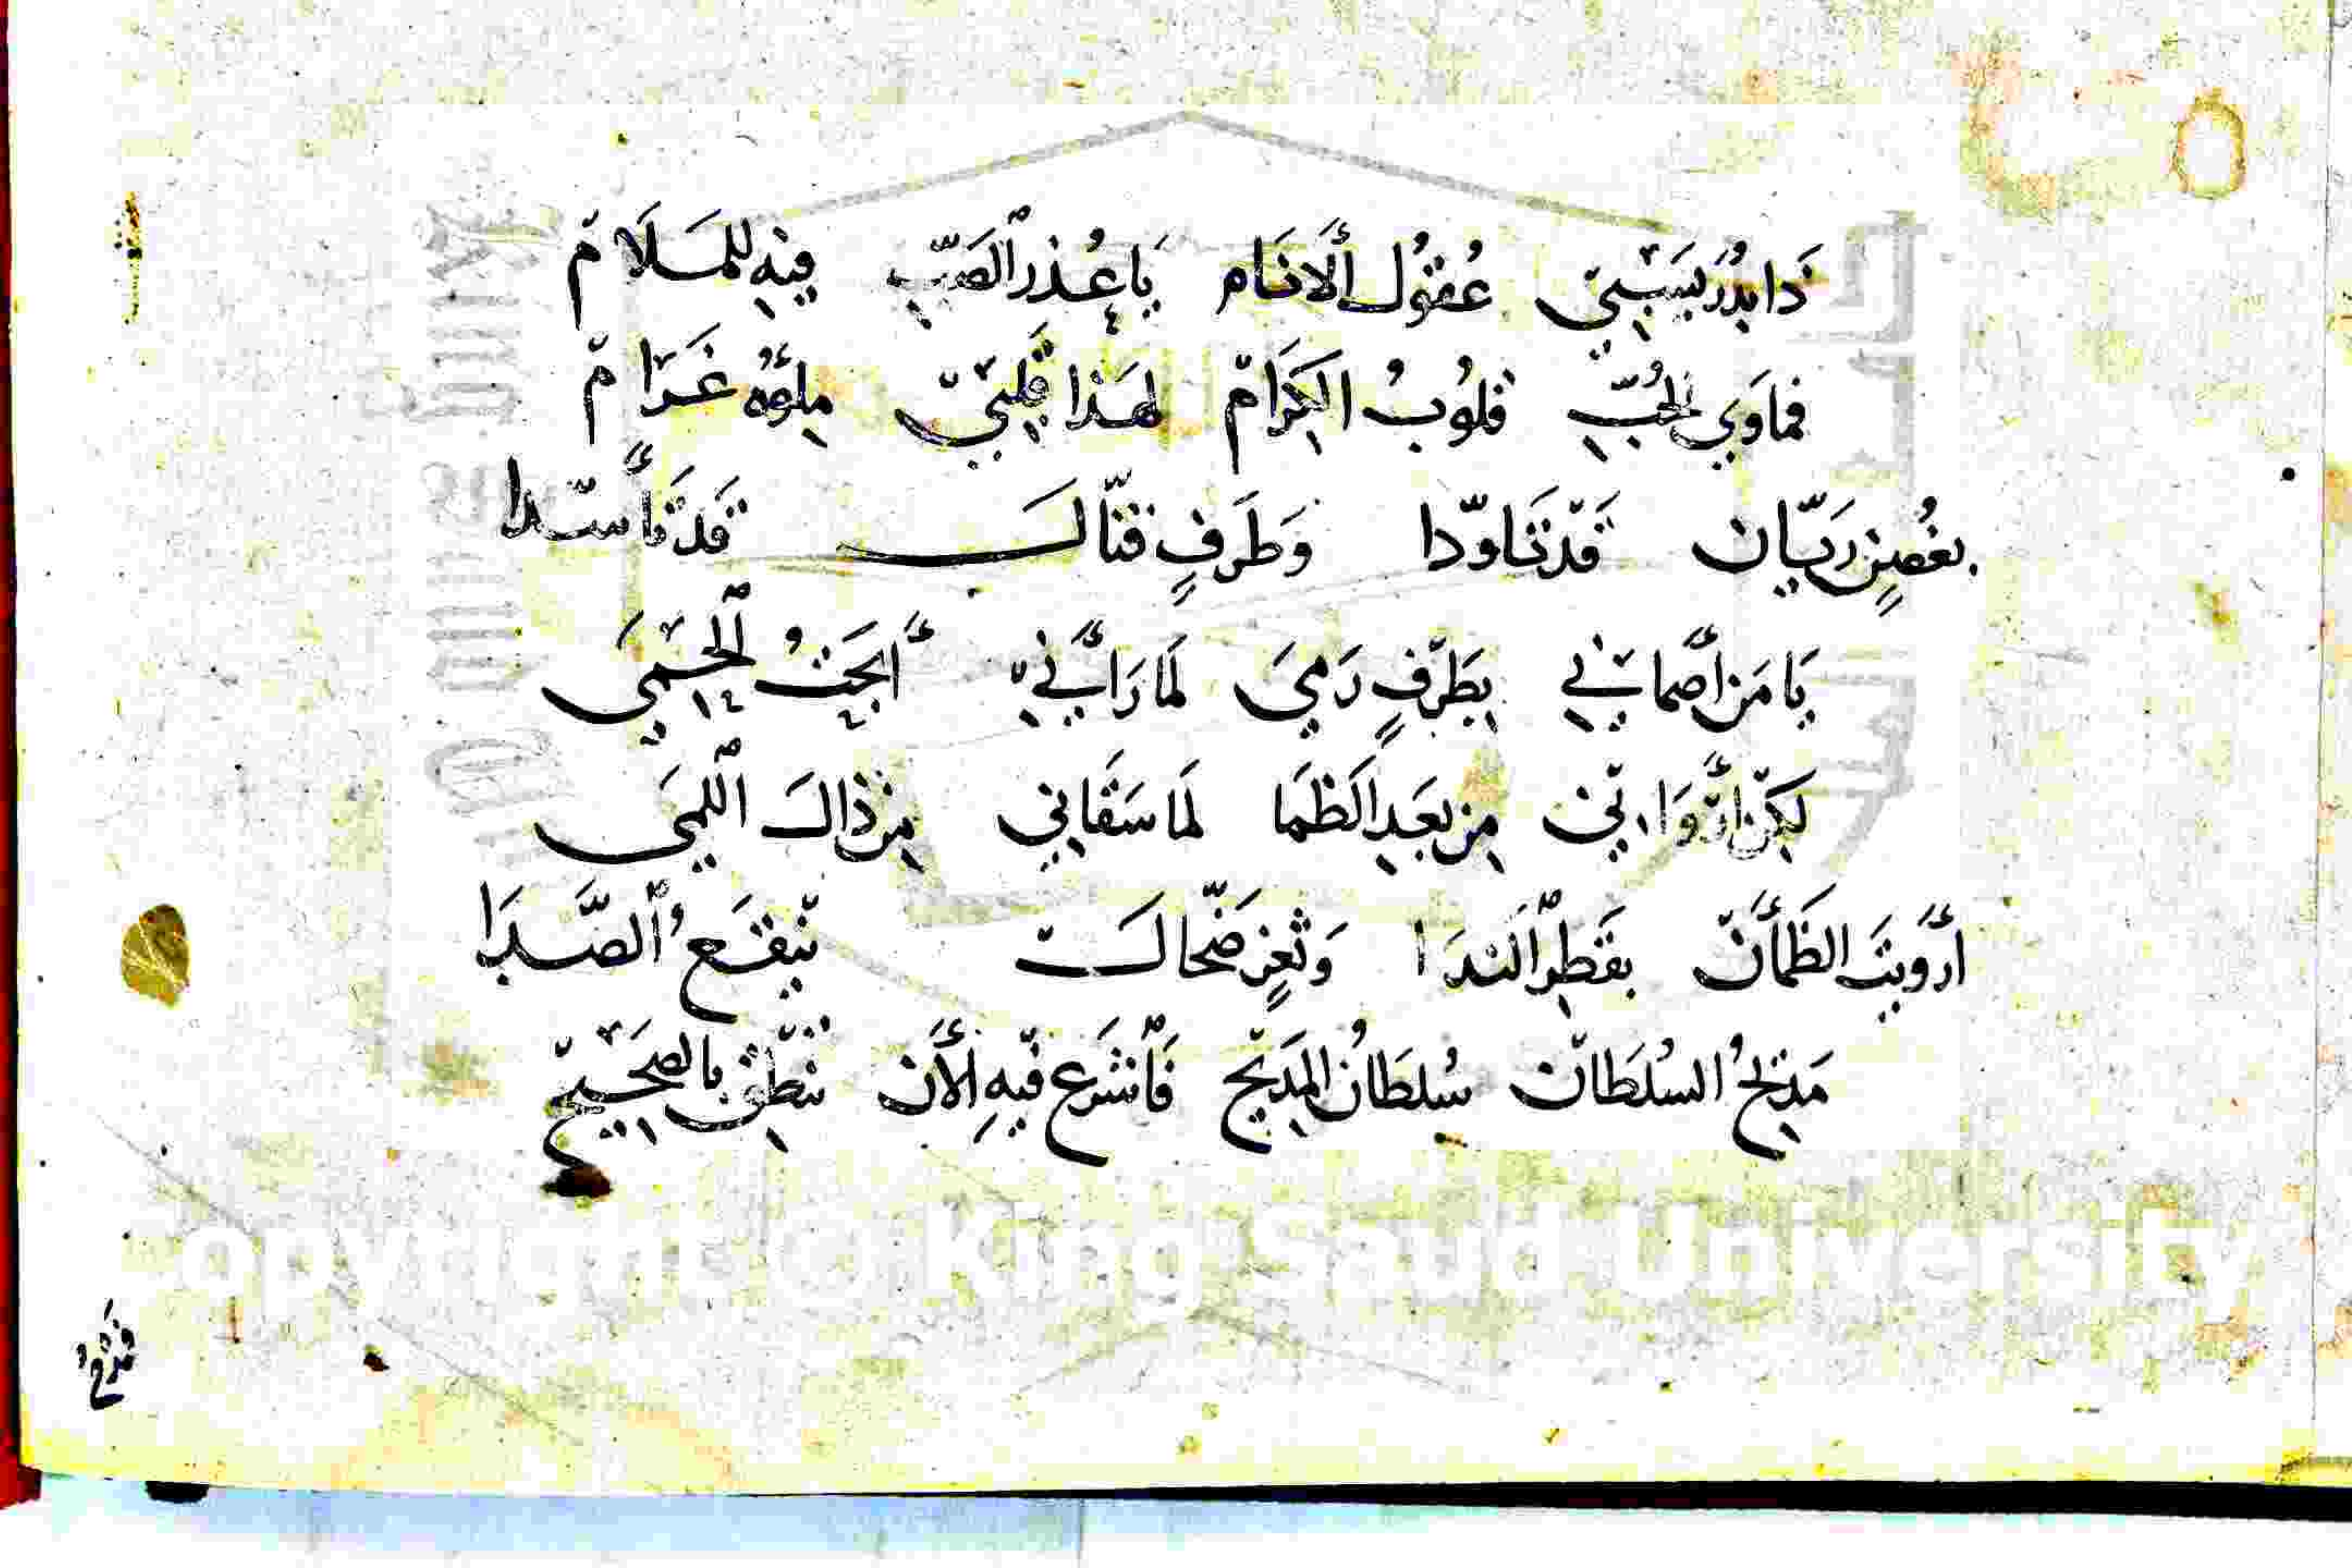 ذَا بدْرُ يَسَبْيٖ عُقوُل اْلأَنَام يَا عُذر الصَبّ فيْهِ لِلمَلَامْ
فمَاوَيِ الحُبّ قلوُبُ الكِرَامْ لهَذا قَلبيْ مِلؤُه غَرَامْ
بغُصِنٍ رَيّان قَدْ تَنَاوّدا وَطَرَفٍ فتّاك قَد تَأَسّدا
يَا مَن أَصْمانيْ بِطَرْفٍ رَميَ لمَا رَاَنيْ أَبحَثُ الْحِمْيَ
لكِن أَرْوَانيْ مِن بعَدِ الَظمَا لمَا سَقَانِي مِن ذاكَ اللميَ
أَرْوَيتَ الظَمأَنْ بقَطِر الَندَا وَثغٍر ضَحّاكْ يَنقَعُ الصَّدَا
مَديْحُ السُلطَانْ سُلطَانُ المَديْح فَاْشرَع فيْهِ الأَن تنْطِقْ بالصَحِيْح
فمَدْحُ
opyright © King Saud University